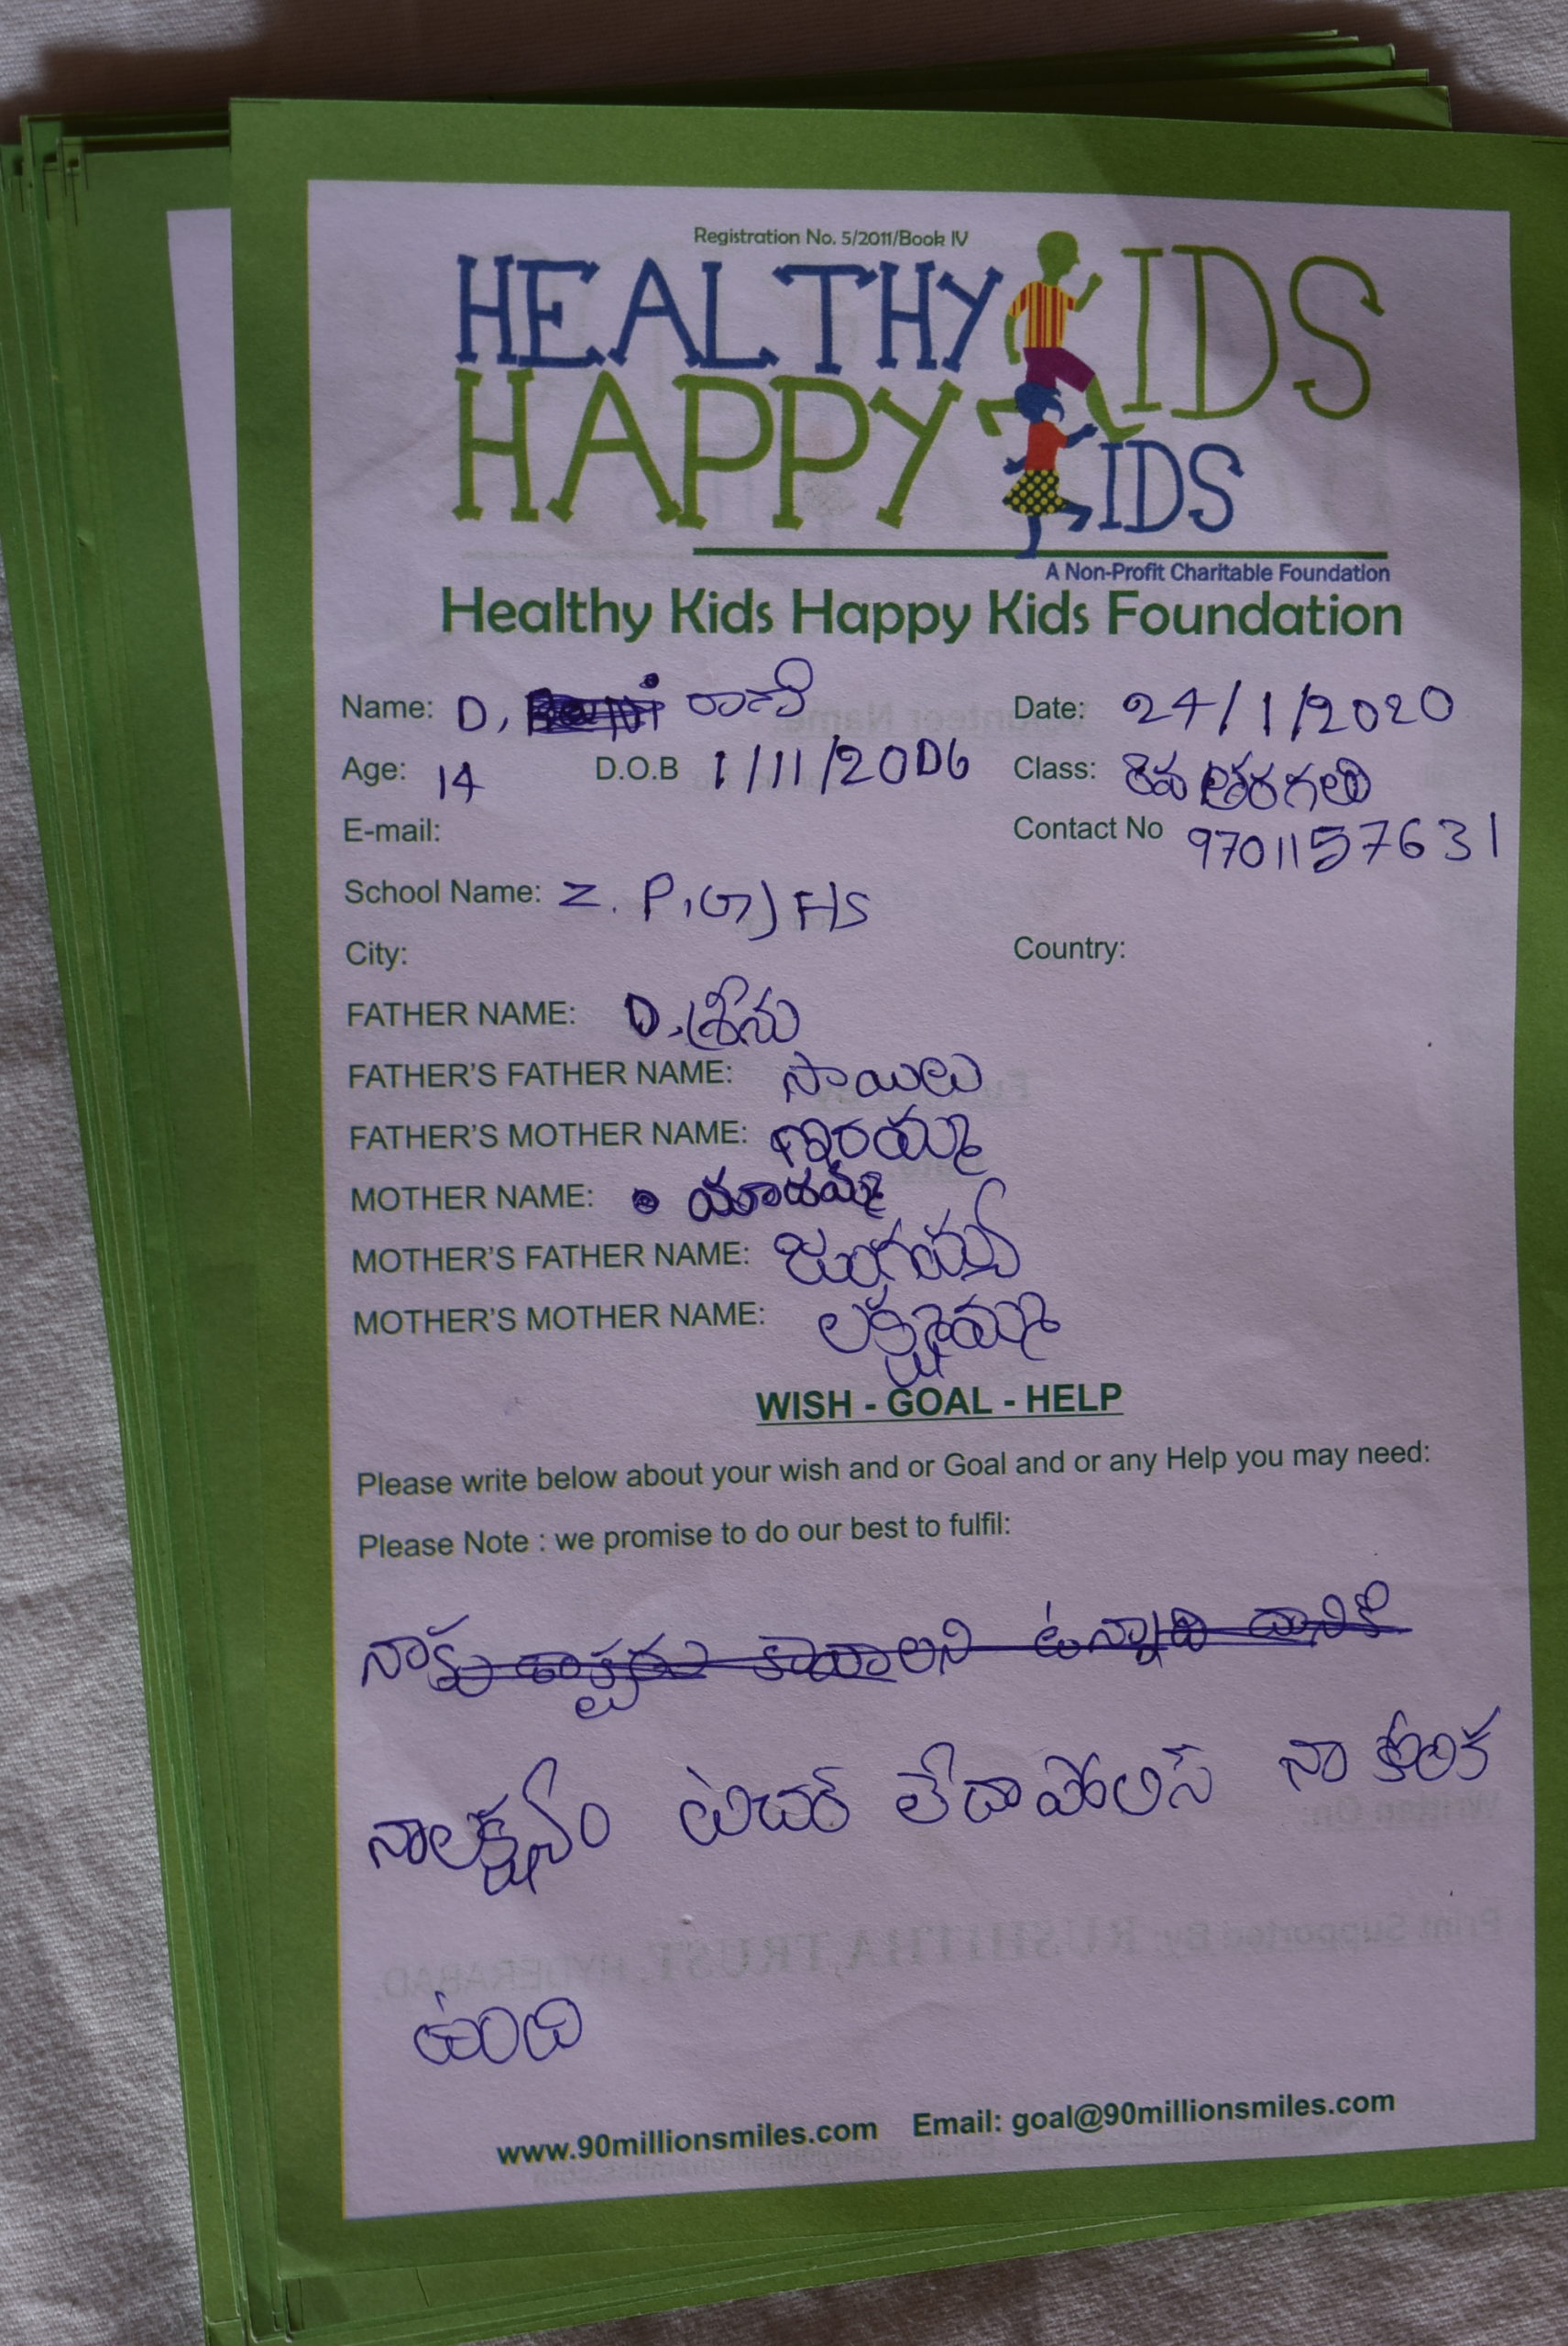 Registration No. 5/2011/Book IV
HEALTHY KIDS
HAPPY KIDS
A Non-Profit Charitable Foundation
Healthy Kids Happy Kids Foundation
Name: D, రాణి Date: 24/1/2020
Age: 14 D.O.B 1/11/2006 Class: 8వ తరగతి
E-mail: Contact No 9701157631
School Name: Z. P.(G) HS
City: Country:
FATHER NAME: D. శ్రీను
FATHER'S FATHER NAME: సాయిలు
FATHER'S MOTHER NAME:
MOTHER NAME: యాదమ్మ
MOTHER'S FATHER NAME: జంగయ్య
MOTHER'S MOTHER NAME: లక్ష్మమ్మ
WISH - GOAL - HELP
Please write below about your wish and or Goal and or any Help you may need:
Please Note : we promise to do our best to fulfil:
నాకు డాక్టరు కావాలని ఉన్నాది దానికి
నాలక్షనం టిచర్ లేదా పోలిస్ నా కోరిక
ఉంది
www.90millionsmiles.com Email: goal@90millionsmiles.com